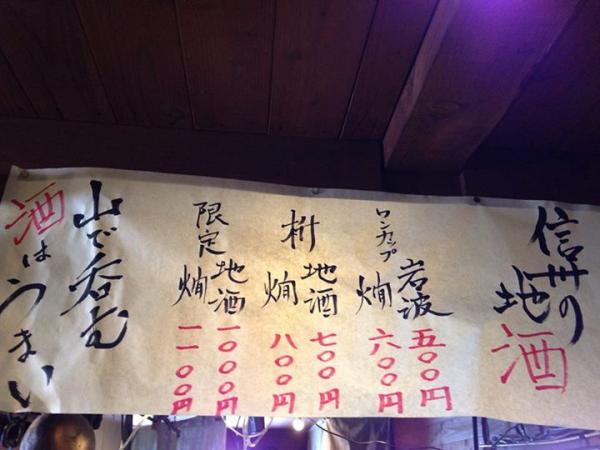 信州の
地酒
ワンカップ
岩波 五〇〇円
燗 六〇〇円
枡
地酒 七〇〇円
燗 八〇〇円
限定
地酒 一〇〇〇円
燗 一一〇〇円
山で呑む
酒はうまい